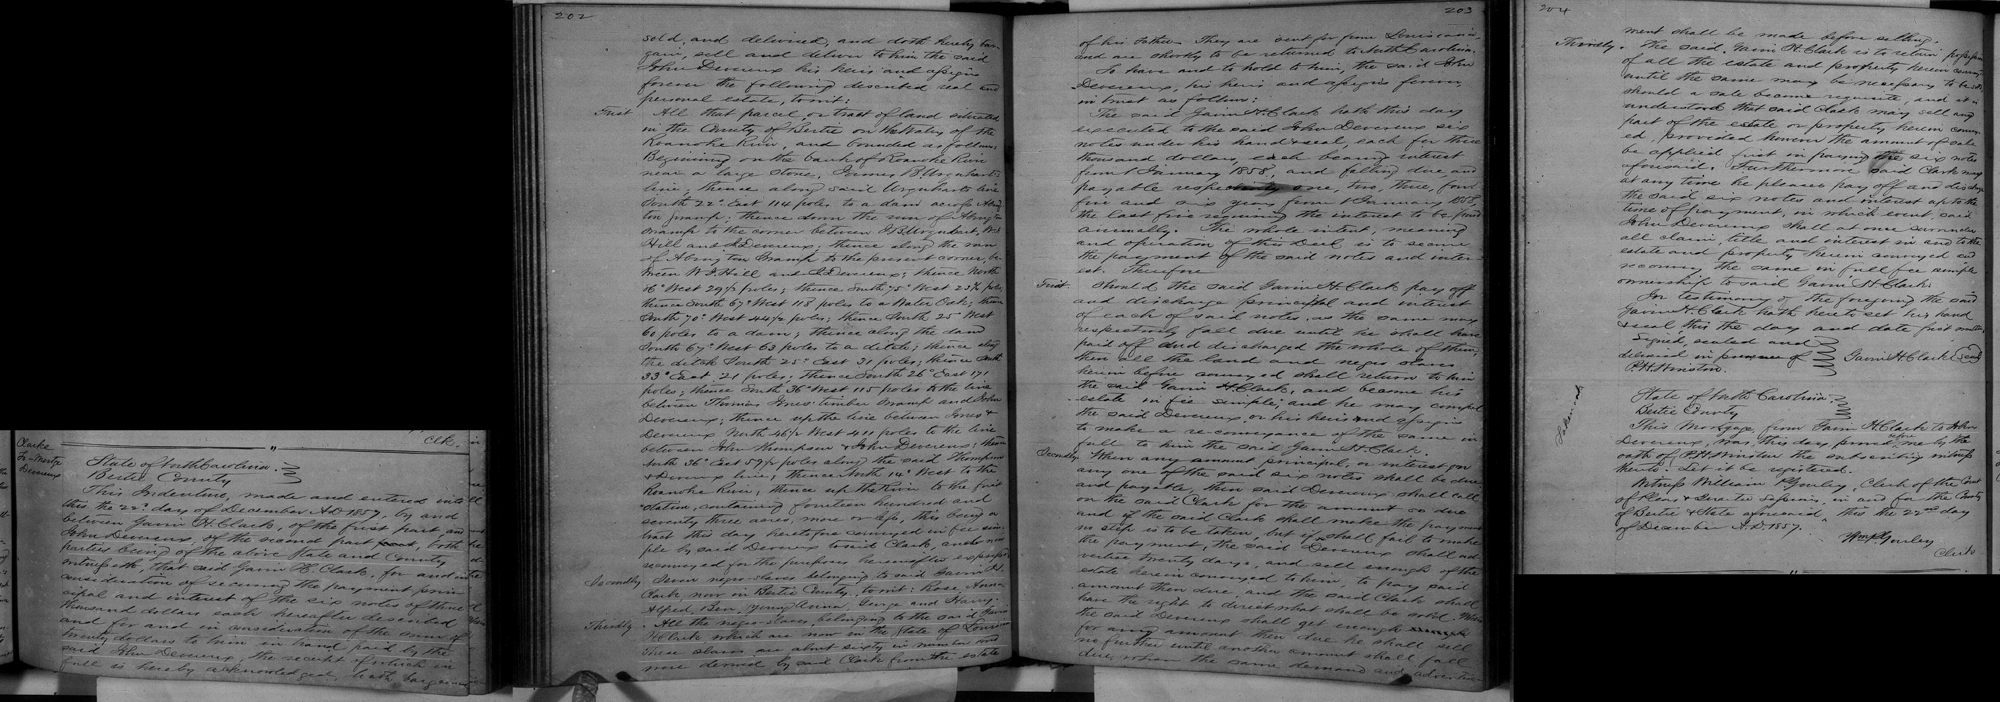 Clk.
Clarke
To-Mortg
Devereux
State of North Carolina.
Bertie County
This Indenture, made and entered into
this the 22d day of December A.D. 1857, by and
between Gavin H. Clark, of the first part and
John Devereux, of the second part, both
parties being of the above State and County
witnesseth, that said Gavin H. Clark, for and in the
consideration of securing the payment prin-
cipal and interest of the six notes of three
thousand dollars each hereafter described
and for and in consideration of the sum of
twenty dollars to him in hand paid by the
said John Devereux, the receipt of which in
full is hereby acknowledged, hath bargained
202
sold, and delivered, and doth hereby bar-
gain, sell and deliver to him the said
John Devereux his heirs and assigns
forever the following described real and
personal estate, to wit:
First All that parcel or tract of land situated
in the County of Bertie on the Waters of the
Roanoke River, and bounded as follows,
Beginning on the bank of Roanoke River
near a large stone, James B. Urquhart's
line; thence along said Urquharts line
South 22° East 114 poles to a dam across Abing-
ton swamp; thence down the run of Abington
swamp to the corner between J.B. Urquhart, W.J.
Hill and J. Devereux; thence along the run
of Abington Swamp to the present corner, be-
tween W.J. Hill and J. Devereux; thence North
16° West 29½ poles; thence South 75° West 23¼ poles
thence South 67° West 118 poles to a Water Oak; thence
South 70° West 44½ poles; thence South 25 West
60 poles to a dam; thence along the dam
South 67° West 63 poles to a ditch; thence along
the ditch South 25° East 31 poles; thence South
33° East 21 poles; thence South 26° East 171
poles; thence South 36° West 115 poles to the line
between Thomas Jones timber swamp and John
Devereux; thence up the line between Jones &
Devereux North 46½ West 411 poles to the line
between John Thompson & John Devereux; thence
North 36° East 59½ poles along the said Thompsons
& Devereux line; thence North 14° West to the
Roanoke River; thence up the River to the first
station, containing fourteen hundred and
seventy three acres, more or less, this being a
tract this day heretofore conveyed in fee sim-
ple by said Devereux to said Clark, and is now
reconveyed for the purposes hereinafter expressed
Secondly Seven negro slaves belonging to said Gavin H.
Clark, now in Bertie County, to wit: Rose, Anna
Alfred, Ben, young Anna, George and Harry.
Thirdly. All the negro slaves, belonging to the said Gavin
H. Clark which are now in the State of Louisiana
These slaves are about sixty in number and
were derived by said Clark from the estate
203
of his Father. They are sent for from Louisiana
and are shortly to be returned to North Carolina.
To have and to hold to him, the said John
Devereux, his heirs and assigns forever,
in trust as follows:
The said Gavin H. Clark hath this day
executed to the said John Devereux six
notes under his hand & seal, each for three
thousand dollars, each bearing interest
from 1 January 1858, and falling due and
payable respectively one, two, three, four
five and six years from 1 January 1858,
the last five requiring the interest to be paid
annually. The whole intent, meaning
and operation of this Deed is to secure
the payment of the said notes and inter-
est. Therefore
First. Should the said Gavin H. Clark pay off
and discharge principal and interest
of each of said notes, as the same may
respectively fall due until he shall have
paid off and discharged the whole of them,
then all the land and negro slaves
herein before conveyed shall return to him
the said Gavin H. Clark, and become his
estate in fee simple, and he may compel
the said Devereux, or his heirs and assigns
to make a reconveyance of the same in
full to him the said Gavin H. Clark.
Secondly When any amount principal, or interest on
any one of the said six notes shall be due
and payable, then said Devereux shall call
on the said Clark for the amount so due
and if the said Clark shall make the payment
no step is to be taken, but if he shall fail to make
the payment, the said Devereux shall ad-
vertise twenty days, and sell enough of the
estate herein conveyed to him, to pay said
amount then due, and the said Clark shall
have the right to direct what shall be sold. When
the said Devereux shall get enough
for any amount then due he shall sell
no further until another amount shall fall
due, when the same demand and advertise-
204
ment shall be made before selling.
Thirdly. The said Gavin H. Clark is to retain possession
of all the estate and property herein convey-
until the same may be necessary to be sold
should a sale become requisite, and it is
understood that said Clark may sell any
part of the estate or property herein convey-
ed, provided however the amount of sale
be applied first in paying the six notes
aforesaid. Furthermore said Clark may
at any time he pleases pay off and discharge
the said six notes and interest up to the
time of payment, in which event, said
John Devereux shall at once surrender
all claim, title and interest in and to the
estate and property herein conveyed and
reconvey the same in full fee simple
ownership to said Gavin H. Clark.
In testimony of the foregoing the said
Gavin H. Clark hath hereto set his hand
& seal this the day and date first written
Signed, sealed and
delivered in presence of Gavin H. Clark seal
P.H. Winston.
State of North Carolina.
Bertie County
This Mortgage from Gavin H. Clark to John
Devereux, was this day proved before me by the
oath of P.H. Winston the subscribing witness
thereto. Let it be registered.
Witness William P. Gurley, Clerk of the Court
of Pleas & Quarter Sessions, in and for the County
of Bertie & State aforesaid, this the 22nd day
of December A.D. 1857.
Wm P. Gurley
Clerk